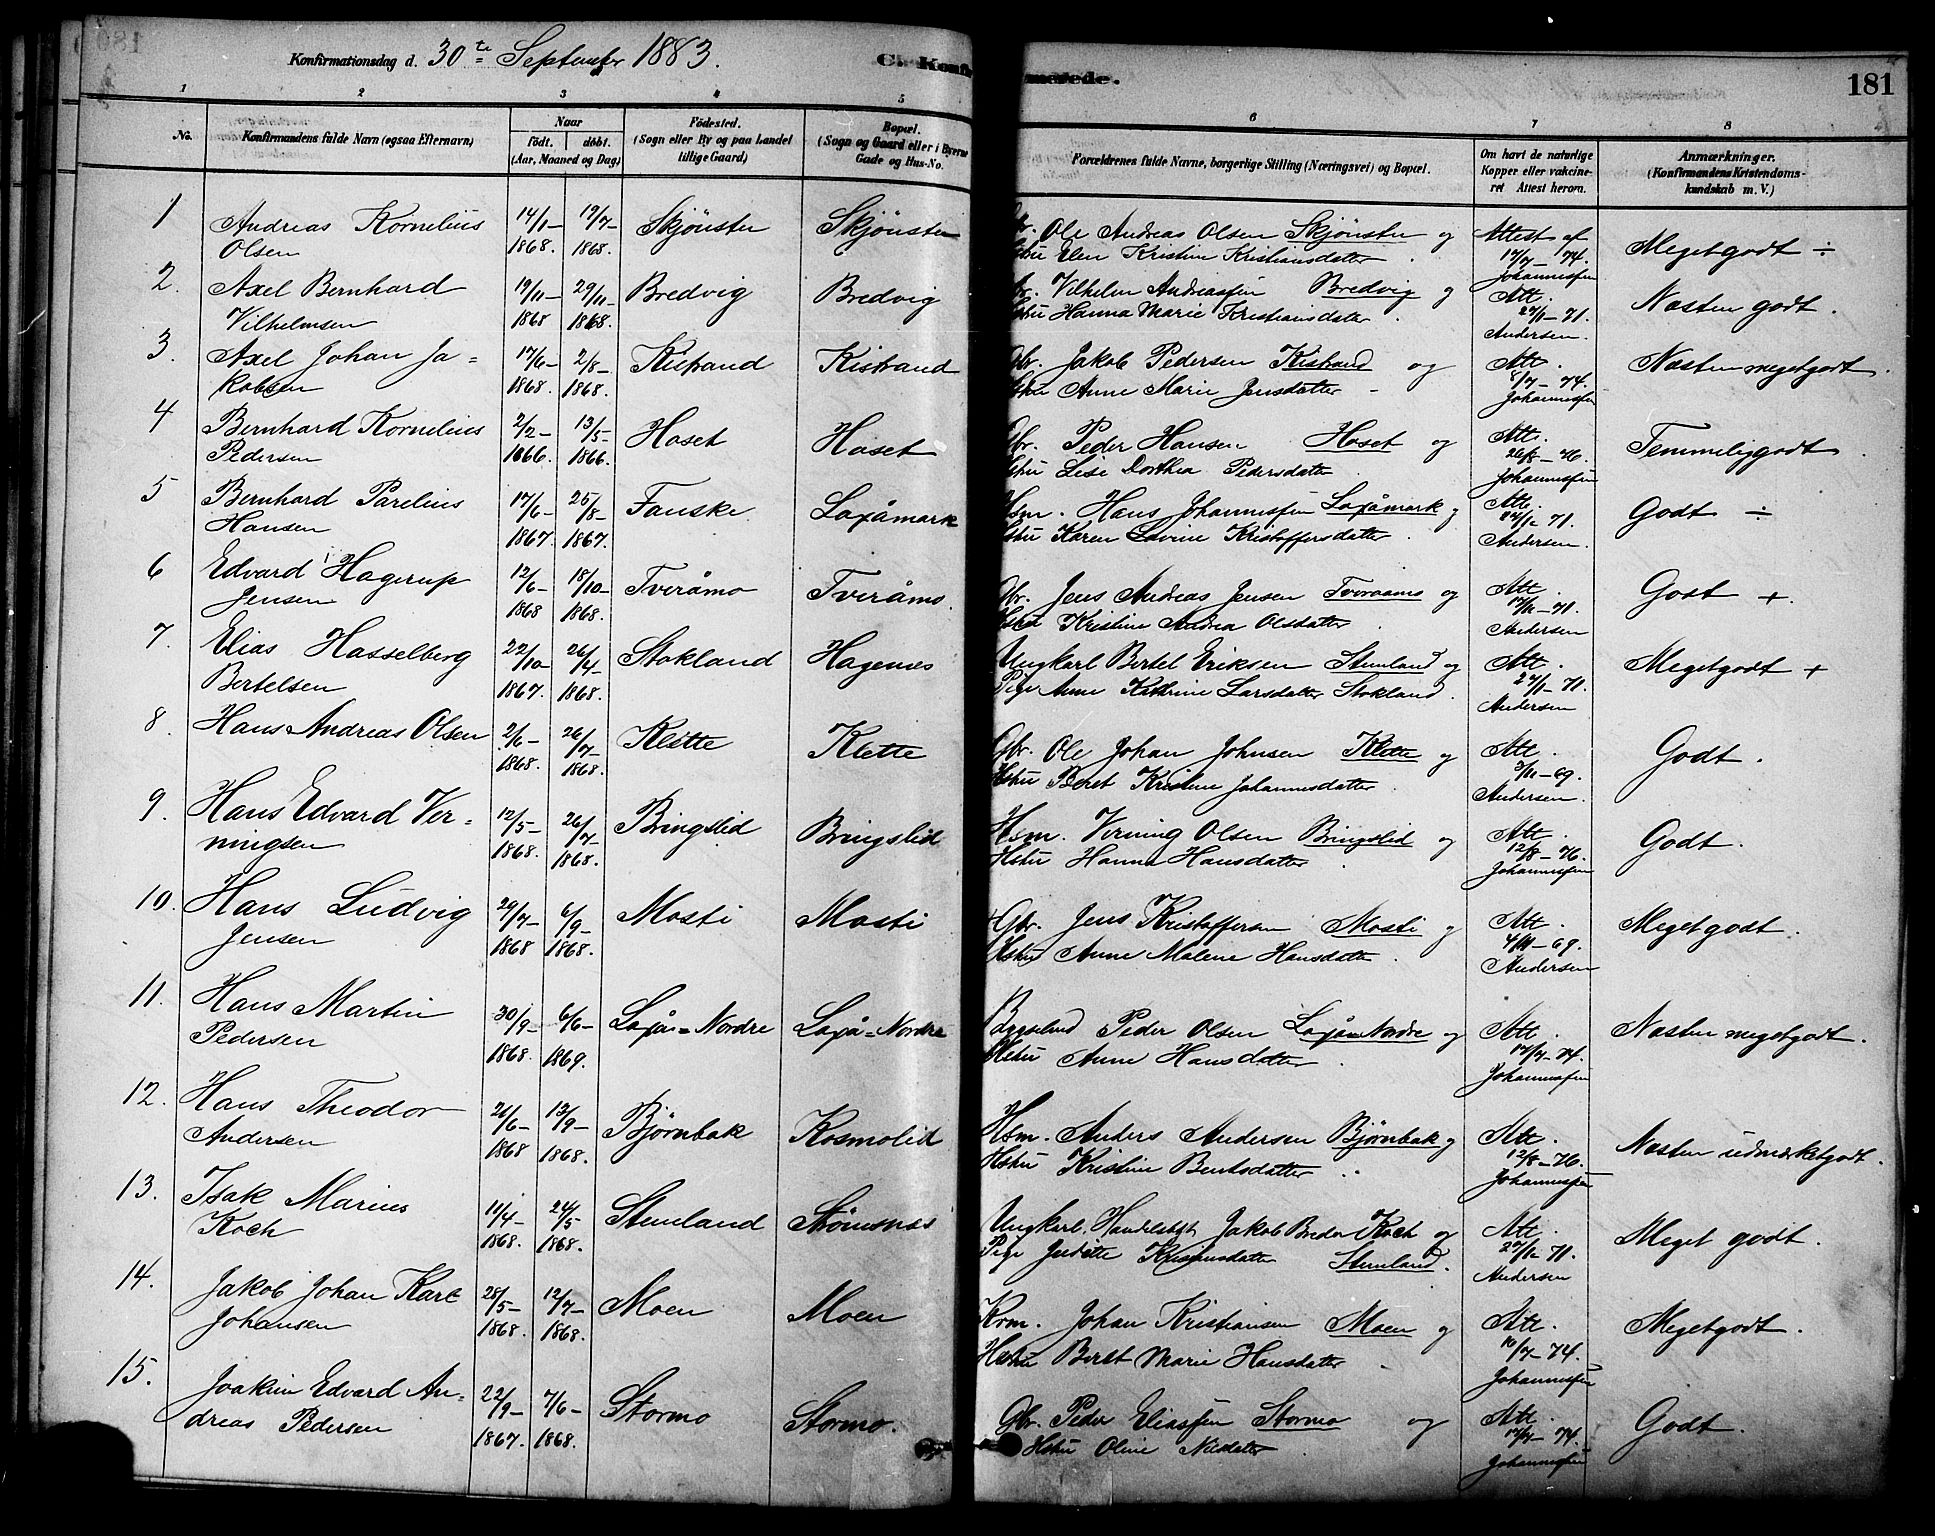 Konfirmationsdag d. 30te September 1883.
181
1 2 3 4 5 6 7 8
No. Konfirmandens fulde Navn (ogsaa Efternavn) Naar født. døbt. (Aar, Maaned og Dag) Fødested. (Sogn eller By og paa Landet tillige Gaard) Bopæl. (Sogn og Gaard eller i Byerne Gade og Hus-No. Forældrenes fulde Navne, borgerlige Stilling (Næringsvei) og Bopæl. Om havt de naturlige Kopper eller vakcineret Attest herom. Anmærkninger. (Konfirmandens Kristendomskundskab m. V.)
1 Andreas Kornelius 14/1- 19/7- Skjönstu Skjönstu Gbr. Ole Andreas Olsen Skjönstu og Attest af Megetgodt ÷
Olsen 1868. 1868. Hstu Elen Kristine Kristiansdatter. 17/7-74. Johannessen
2. Axel Bernhard 19/11- 29/11- Bredvig Bredvig Gbr. Vilhelm Andreassen Bredvig og Att. Næsten godt.
Vilhelmsen 1868 1868. Hstu Hanna Marie Kristiansdatter. Andersen.
3. Axel Johan Ja- 17/6- 2/8- Kistrand Kistrand Gbr. Jakob Pedersen Kistrand og Att. Næsten megetgodt.
kobsen 1868. 1868. Hstu Anne Marie Jensdatter - 8/7-74. Johannessen
4 Bernhard Kornelius 2/2- 13/5- Hoset Hoset Gbr. Peder Hansen Hoset og Att. Temmeliggodt
Pedersen 1866. 1866. Hstu Lise Dorthea Pedersdatter 26/8-76. Johannessen
5 Bernhard Parelius 17/6- 25/8- Fauske Laxåmark Hsm. Hans Johannessen Laxåmark og Att. Godt ÷
Hansen 1867. 1867. Hstu Karen Lovine Kristoffersdatter. Andersen.
6 Edvard Hagerup 12/6- 18/10- Tveråmo Tveråmo. Gbr. Jens Andreas Jensen Tveraamo og Att. Godt +.
Jensen 1868 1868. Hstu Kristine Andrea Olsdatter. Andersen
7. Elias Hasselberg 22/10- 26/4- Stokland Hagenes Ungkarl Bertel Eriksen Stemland og Att. Megetgodt +
Bertelsen 1867. 1868. Pige Anne Kathrine Larsdatter Stokland. Andersen
8. Hans Andreas Olsen 2/6- 26/7- Klette Klette Gbr. Ole Johan Johnsen Klette og Att. Godt.
1868. 1868. Hstu Beret Kristine Johannesdatter. Andersen.
9. Hans Edvard Ver- 12/5- 26/7- Bringslid Bringslid Hsm. Verning Olsen Bringslid og Att. Godt.
ningsen 1868. 1868. Hstu Hanna Hansdatter. 12/8-76. Johannessen
10. Hans Ludvig 29/7- 6/9- Mosti Mosti Gbr. Jens Kristoffersen Mosti og Att. Megetgodt.
Jensen 1868 1868. Hstu Anne Malene Hansdatter. Andersen
11. Hans Martin 30/9- 6/6- Laxå-Nordre Laxå-Nordre Peder Olsen Laxå-Nordre og Att. Næsten megetgodt.
Pedersen 1868. 1869. Hstu Anne Hansdatter. 17/7-74. Johannessen
12. Hans Theodor 26/6- 13/9- Bjørnbak Kosmolid Hsm. Anders Andersen Bjørnbak og Att. Næsten udmærketgodt.
Andersen 1868 1868. Hstu Kristine Bentsdatter. 12/8-76. Johannessen
13. Isak Marius 11/4- 24/5- Stemland Stømsnæs Ungkarl. Jakob Breder Koch og Att. Meget godt.
Koch 1868. 1868. Pige Juditte Kristensdatter Stemland. Andersen
14. Jakob Johan Karl 28/5- 12/7- Moen Moen Krm. Johan Kristiansen Moen og Att. Megetgodt.
Johansen 1868. 1868. Hstu Beret Marie Hansdatter 10/7-74. Johannessen
15. Joakim Edvard An- 22/9- 7/6- Stormo Stormo. Gbr. Peder Eliassen Stormo og Att. Godt.
dreas Pedersen 1867. 1868. Hstu Oline Nilsdatter. 17/7-74. Johannessen